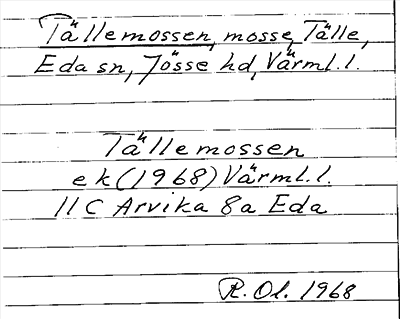 Tällemossen, mosse, Tälle,
Eda sn, Jösse hd, Värml. l.
Tällemossen
ek (1968) Värml. l.
11 C Arvika 8a Eda
R. Ol. 1968